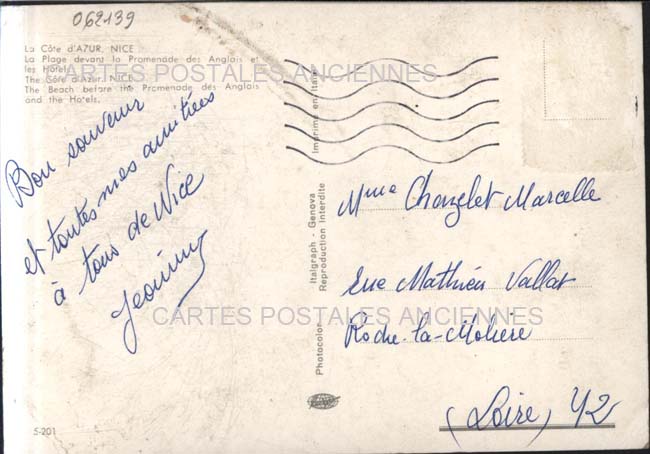 062139
La Côte d'AZUR, NICE
La Plage devant la Promenade des Anglais et
les Hotels.
The Côte d'Azur, NICE
The Beach before the Promenade des Anglais
and the Hotels.
CARTES POSTALES ANCIENNES
Bon souvenir
et toutes mes amitiées
à tous de Nice
Jeanine
Photocolor
Italgraph - Genova
Reproduction Interdite
Imprimé en Italie
Mme Chanzlet Marcelle
rue Mathieu Vallat
Roche-la-Molière
(Loire) 42
CARTES POSTALES ANCIENNES
5-201